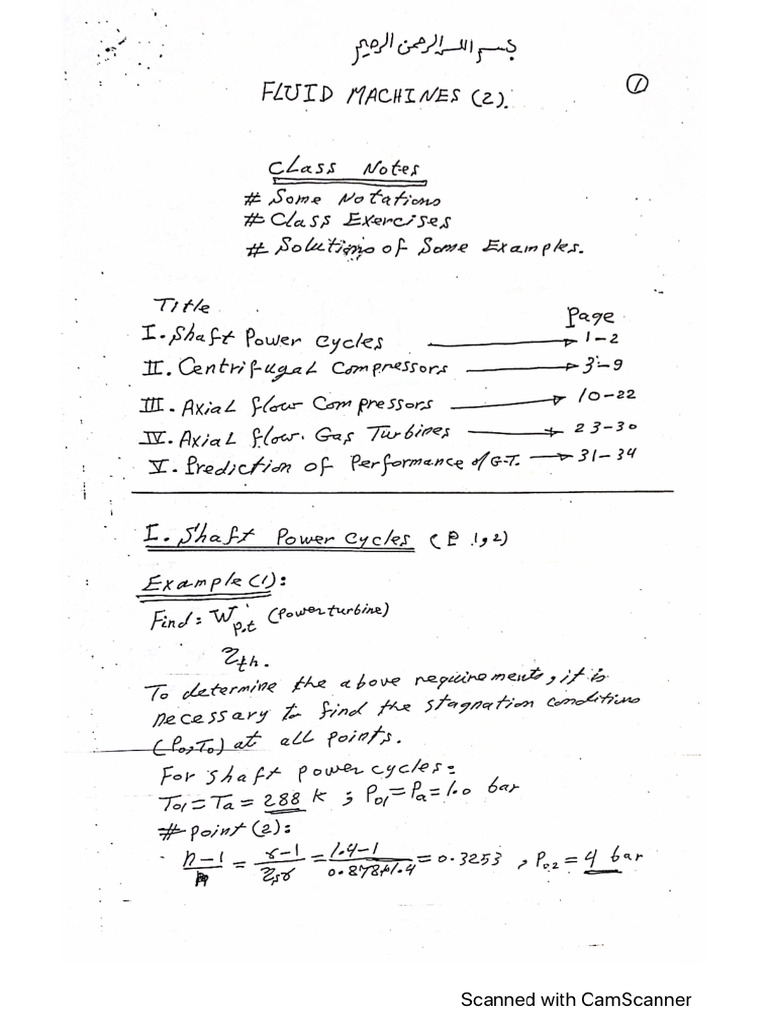 بسم الله الرحمن الرحيم
FLUID MACHINES (2).
①
Class Notes
# Some Notations
# Class Exercises
# Solutions of Some Examples.
Title Page
I. Shaft Power Cycles → 1-2
II. Centrifugal Compressors → 3-9
III. Axial flow Compressors → 10-22
IV. Axial flow. Gas Turbines → 23-30
V. Prediction of Performance of G.T. → 31-34
I. Shaft Power Cycles (P 1,2)
Example (1):
Find: Ẇp.t (Power turbine)
ηth.
To determine the above requirements, it is
necessary to find the stagnation conditions
(Po, To) at all points.
For shaft power cycles:
To1 = Ta = 288 K ; Po1 = Pa = 1.0 bar
# point (2):
n-1/n = γ-1/ηsγ = 1.4-1/0.878*1.4 = 0.3253 , Po2 = 4 bar
Scanned with CamScanner